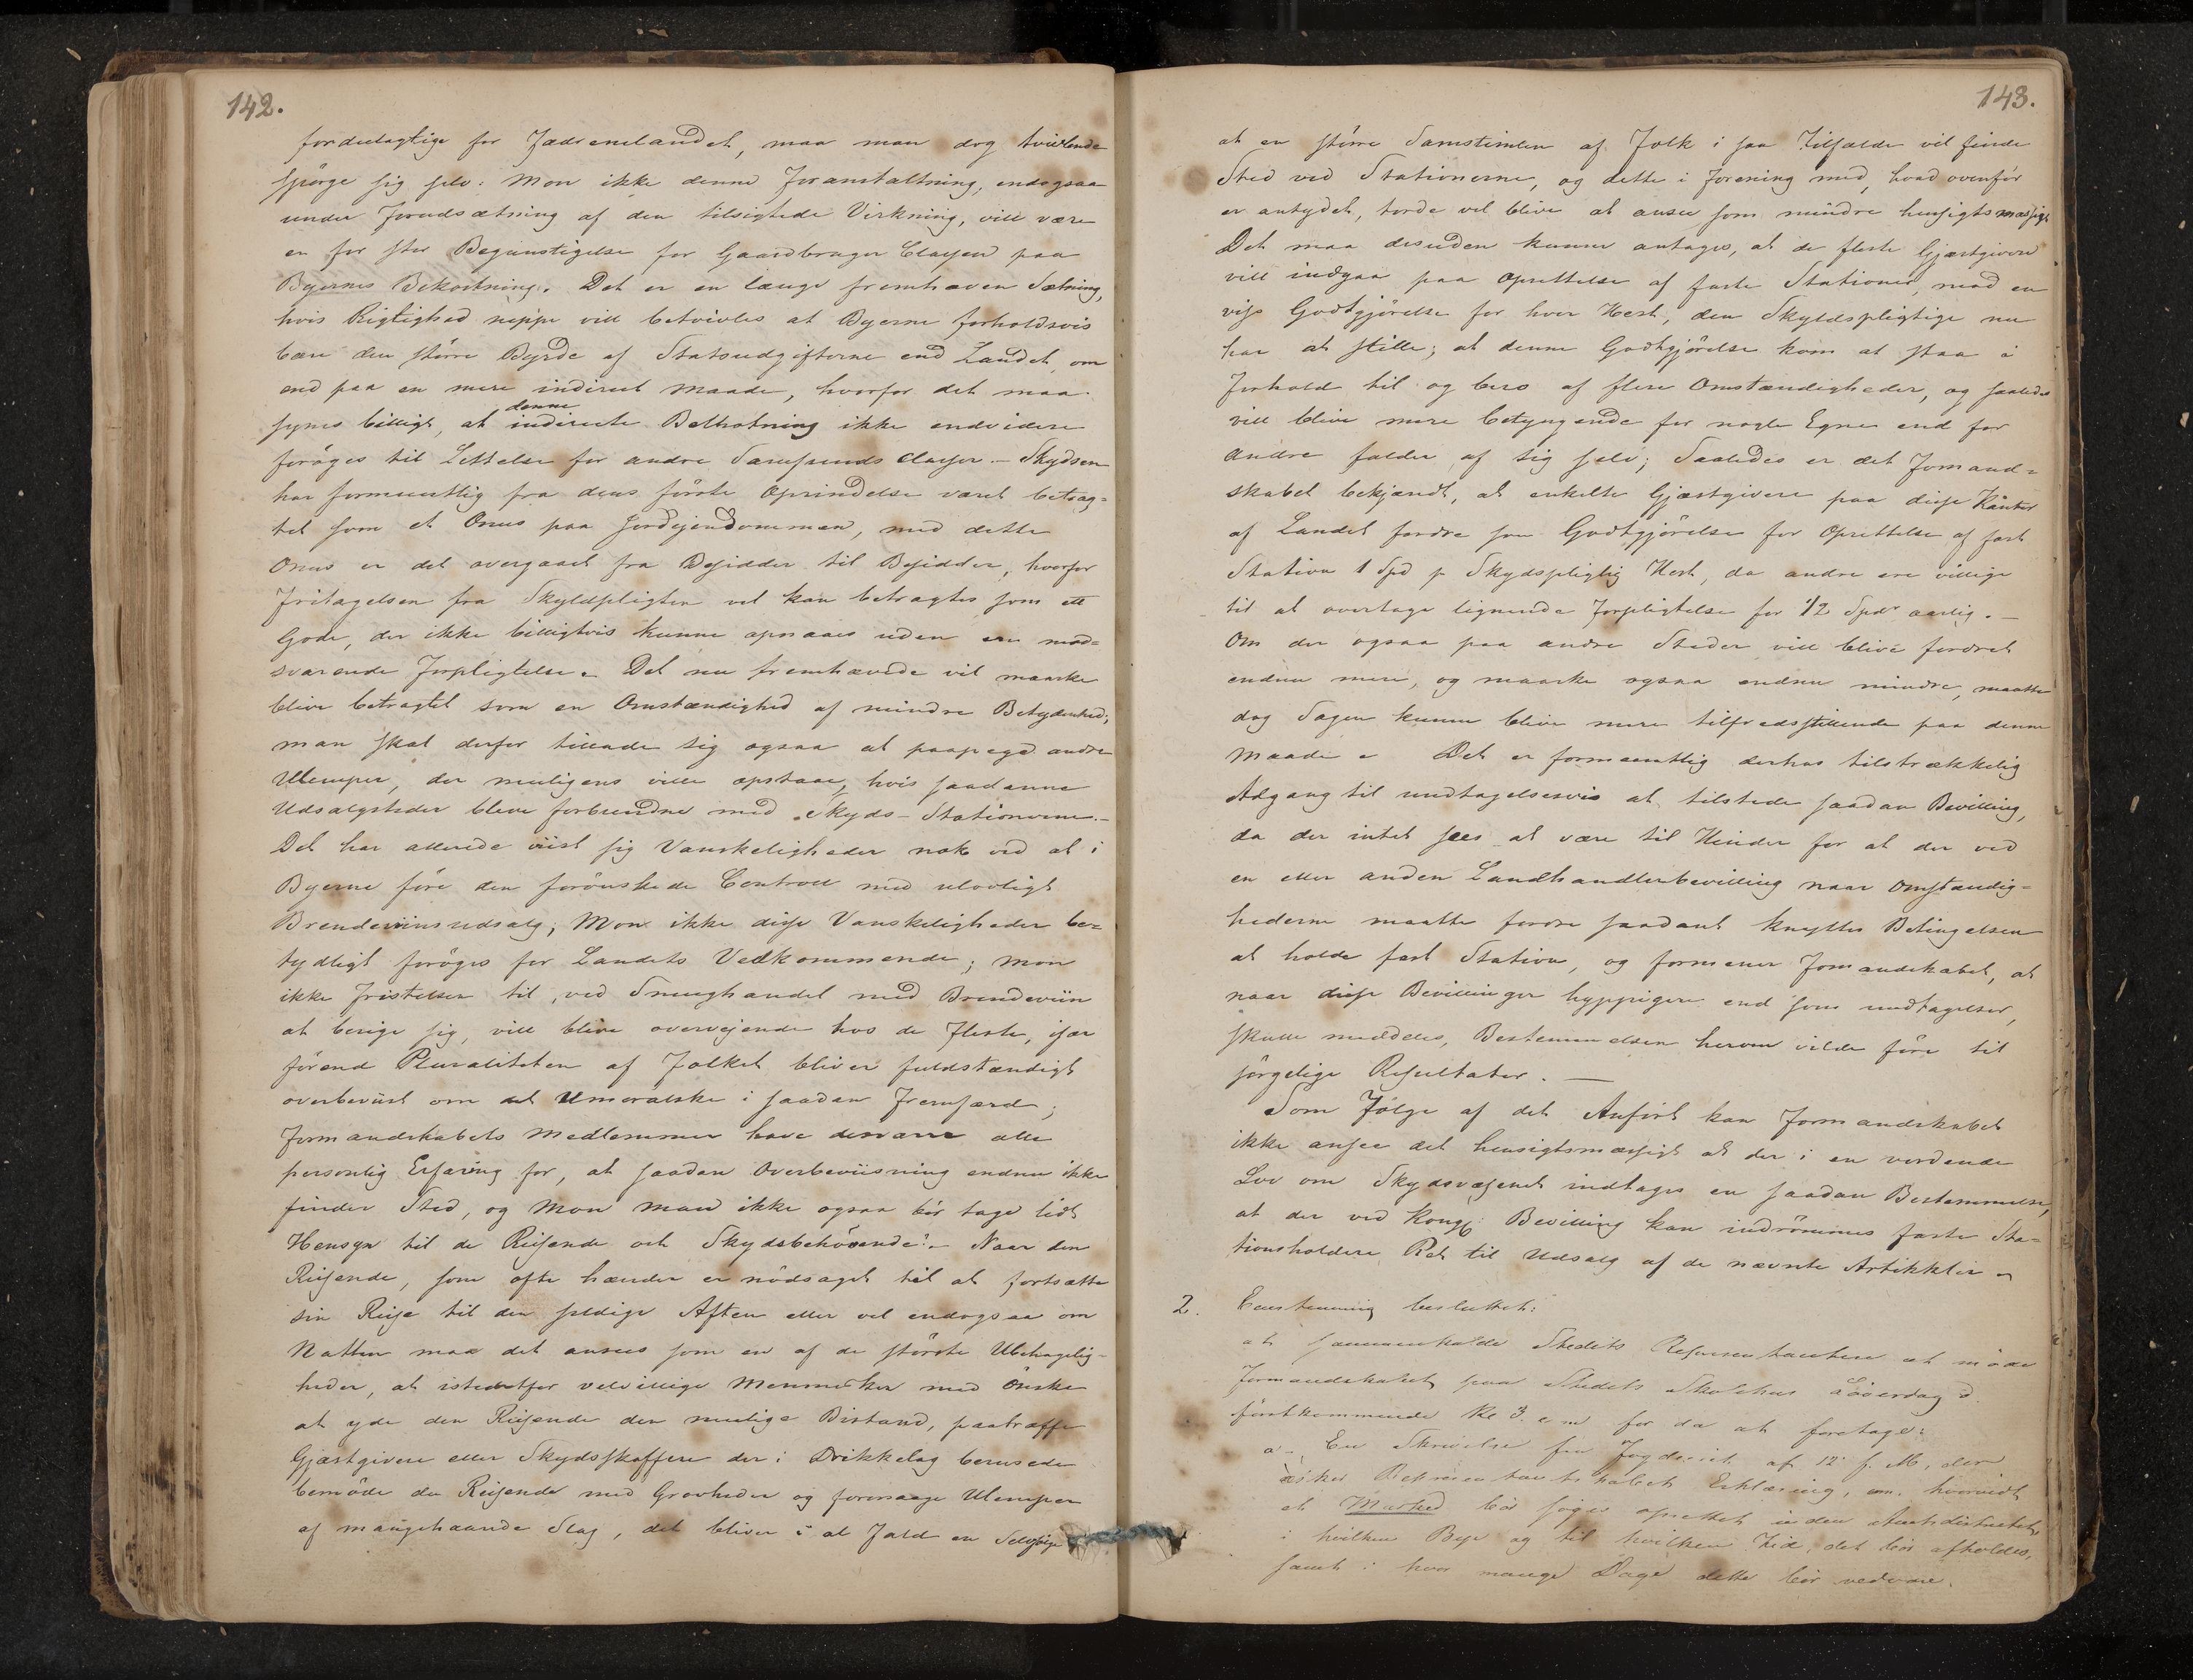 142.
fordeelagtige for Fædrenelandet, maa man dog tvivlende
spörge sig selv: Mon ikke denne Foranstaltning, endogsaa
under Forudsætning af den tilsigtede Virkning, vill være
en for stor Begunstigelse for Gaardbruger Classen paa
Byernes Bekostning. Det er en længe fremhæven Sætning,
hvis Rigtighed neppe vill betvivles at Byerne forholdsvis
bære den större Byrde af Statsudgifterne end Landet, om
end paa en mere indirect maade, hvorfor det maa
synes billigt, at denne indirecte Beskatning ikke endvidere
foröges til Lettelse for andre Samfunds Classer. – Skydsen
har formeentlig fra dens förste Oprindelse været betrag=
tet som et Onus paa Jordejendommen, med dette
Onus er det overgaaet fra Besidder til Besidder, hvorfor
Fritagelsen fra Skydspligten vel kan betragtes som ett
Gode, der ikke billigtvis kunne opnaaes uden en mod=
svarende Forpligtelse. Det nu fremhævede vil maaske
blive betragtet som en Omstændighed af mindre Betydenhed;
man skal derfor tillade sig ogsaa at paapege andre
Ulemper, der muligens ville opstaae, hvis saadanne
Udsalgsteder bleve forbundne med Skyds-Stationerne. –
Det har allerede viist sig Vanskeligheder nok ved at i
Byerne före den forönskede Controll med ulovligt
Brendeviinsudsalg; Mon ikke disse Vanskeligheder be=
tydligt foröges for Landets Vedkommende; mon
ikke Fristelsen til, ved Smughandel med Brendeviin
at berige sig, vill blive overvejende hos de Fleste, især
förend Pluraliteten af Folket bliver fuldstændigt
overbeviist om det Umoralske i saadan Fremfærd;
Formandskabets Medlemmer have desværre alle
personlig Erfaring for, at saadan Overbeviisning endnu ikke
finder Sted, og Mon man ikke ogsaa bör tage lidt
Hensyn til de Reisende och Skydsbehövende? – Naar den
Reisende, som ofte hænder er nödsaget til at fortsætte
sin Reise til den sildige Aften eller vel endogsaa om
Natten maa det ansees som en af de störste Ubehagelig=
heder, at istedetfor velvillige Mennesker med Önske
at yde den Reisende den mulige Bistand, paatræffe
Gjæstgivere eller Skydsskaffere der i Drikkelag berusede
bemöde den Reisende med Grovheder og foraarsage Ulemper
af mangehaande Slag, det bliver i al Fald en Selvfölge
143.
at en större Samstimlen af Folk i saa Tilfælde vil finde
Sted ved Stationerne, og dette i Forening med, hvad ovenfor
er antydet, torde vel blive at ansee som mindre hensigtsmæssigt
Det maa desuden kunne antages, at de fleste Gjæstgivere
vill indgaa paa oprettelse af faste Stationer, mod en
viss Godtgjörelse for hver Hest, den Skydspligtige nu
har at stille; at denne Godtgjörelse kom at staa i
Forhold til og bero af flere Omstændigheder, og saaledes
vill blive mere betyngende for nogle Egne end for
andre falder af sig selv; Saaledes er det Formand=
skabet bekjendt, at enkelte Gjæstgivere paa disse Kanter
af Landet fordre som Godtgjörelse for Oprettelse af fast
Station 1 Spd p Skydspligtig Hest, da andre ere villige
til at overtage lignende Forpligtelse for 1/2 Spdr aarlig. –
Om der ogsaa paa andre Steder vill blive fordret
endnu mere, og maaske ogsaa endnu mindre, maatte
dog Sagen kunne blive mere tilfredsstillende paa denne
Maade. Det er formeentlig derhos tilstrækkelig
Adgang til undtagelsesvis at tilstede saadan Bevilling,
da der intet sees at være til Hinder for at der ved
en eller anden Landhandlerbevilling naar omstændig=
hederne maatte fordre saadant knyttes Betingelsen
at holde fast Station, og formener Formandskabet, at
naar disse Bevillinger hyppigere end som undtagelser,
skulle meddeles, Bestemmelsen herom vilde före til
sörgelige Resultater. –
Som Fölge af det Anförte kan Formandskabet
ikke ansee det hensigtsmæssigt at der i en vordende
Lov om Skydsvæsenet indtages en saadan Bestemmelse,
at der ved Kongl: Bevilling kan indrömmes faste Sta=
tionsholdere Ret til Udsalg af de nævnte Artikkler.
2. Eenstemmig besluttet:
at sammenkalde Stedets Repræsentantere at möde
Formandskabet paa Stedets Skolehus Löverdag
förstkommende Kl 3 e m for da at foretage:
a. En Skrivelse fra Fogderiet af 12' f. M, der
æsker Repræsentantskabets Erklæring, om hvorvidt
et Marked bör söges oprettet inden Amtsdistriktet,
i hvilken Bye og til hvilken Tid, det bör afholdes,
samt i hvor mange Dage dette bör vedvare.